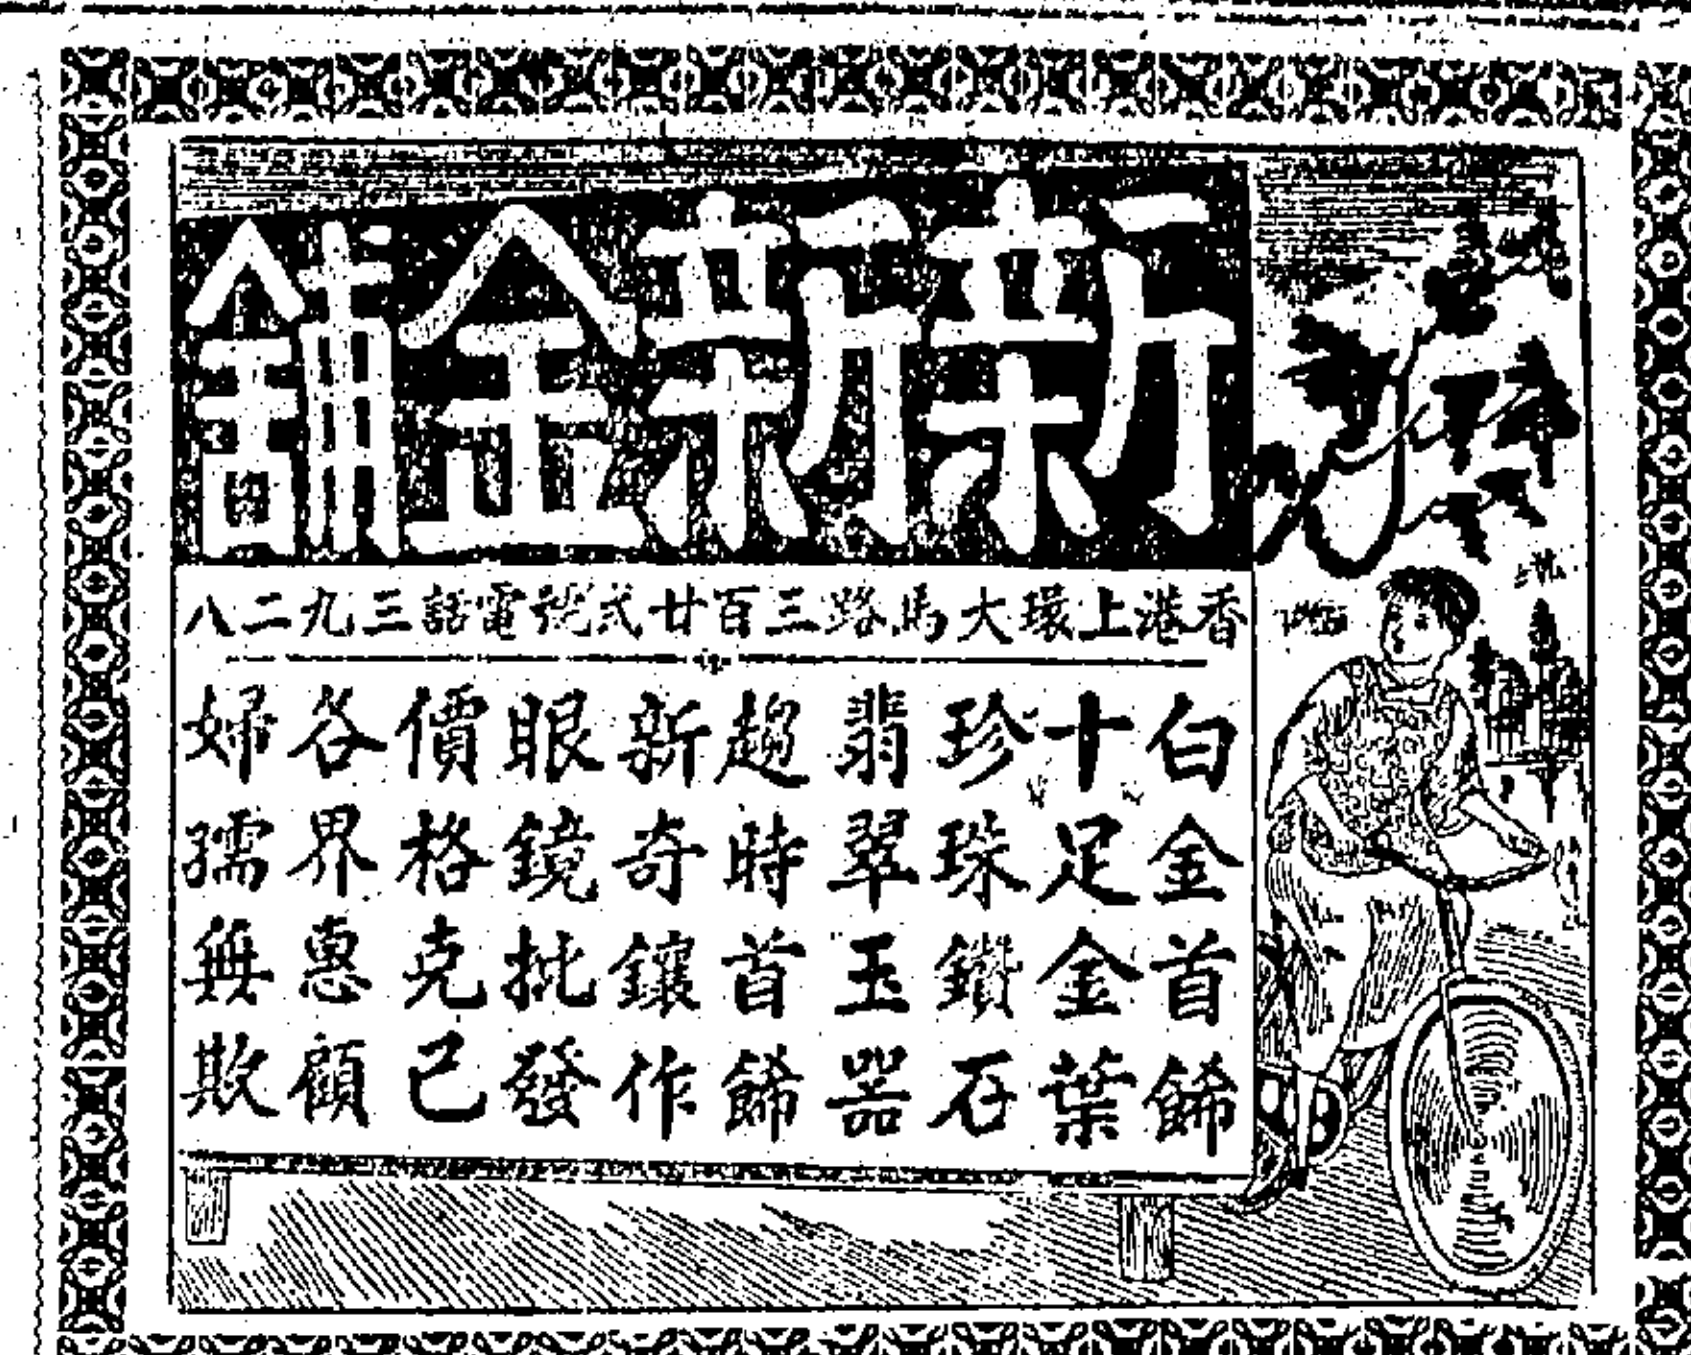 新新金舖
香港上環大馬路三百廿弍號電話三九二八
白金首餙
十足金葉
珍珠鑽石
翡翠玉器
趨時首餙
新奇鑲作
眼鏡批發
價格克己
各界惠顧
婦孺無欺